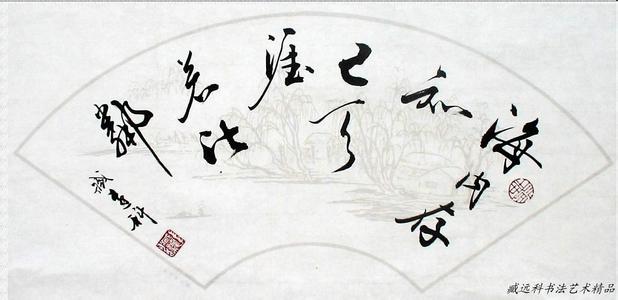 海内存
知
己天
涯
若比
鄰
臧远科
臧远科书法艺术精品